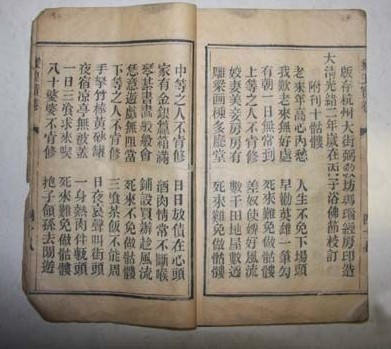 版存杭州大街弼教坊瑪瑙經房印造
大清光緒二年歲在丙子浴佛節校訂
附刊十骷髏
老來年高心內愁 人生不免下場頭
我歎老來無好處 早勸英雄一筆勾
有朝一日無常到 死來難免做骷髏
上等之人不肯修 差奴使婢好風流
姣妻美妾房房有 數千田地屋數
雕梁画棟多廳堂 死來難免做骷髏
中等之人不肯修 日日放債在心頭
家有金銀 箱滿 酒肉情常不斷喉
琴棊書畵般般會 鋪設買辦趁風流
恁意遊戲無阻當 死來不免做骷髏
下等之人不肯修 三飡茶飯不能周
手拏竹棒黃砂罐 日夜哀聲叫街頭
夜宿凉亭無被蓋 一身熱肉伴 頭
一日三飡求來喫 死來難免做骷髏
八十婆婆不肯修 抱子領孫去閙遊